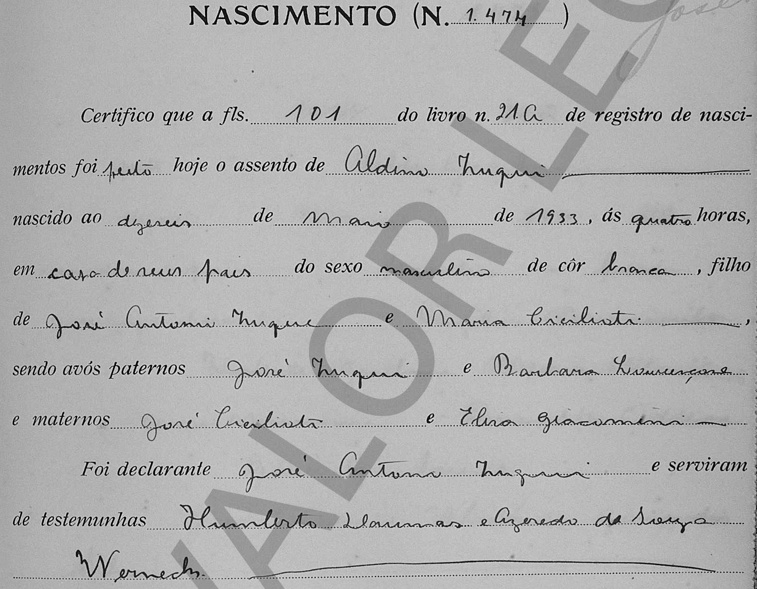 NASCIMENTO (N. 1.474)
Certifico que a fls. 101 do livro n. 21A de registro de nasci-
mentos foi feito hoje o assento de Aldino Zuqui
nascido ao dezeseis de Maio de 1933, ás quatro horas,
em casa de seus pais do sexo masculino de côr branca, filho
de José Antonio Zuqui e Maria Cicilioti,
sendo avós paternos José Zuqui e Barbara
e maternos José Cicilioti e Elisa Giacomini
Foi declarante José Antoni Zuqui e serviram
de testemunhas Humberto e Azeredo de Souza
Werneck.
VALOR